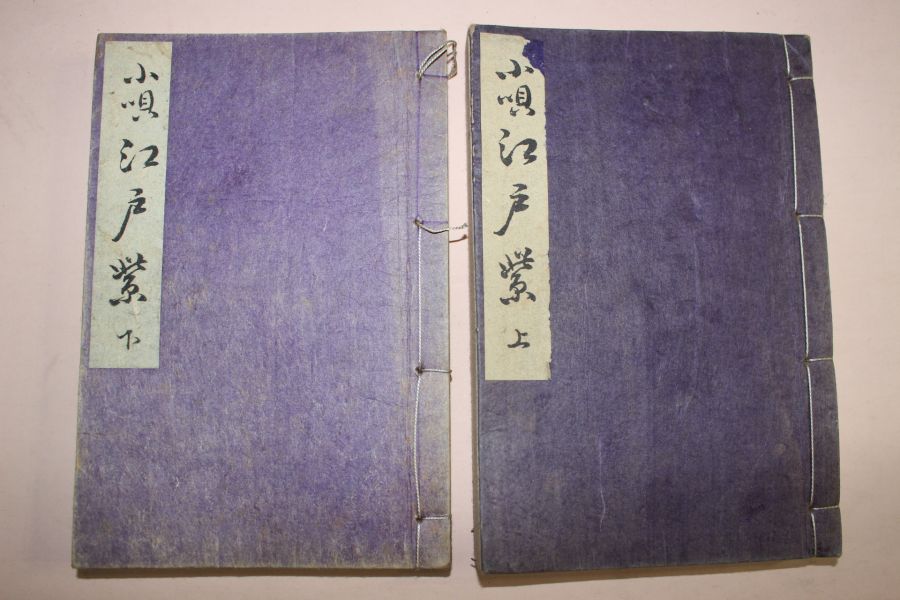 小唄江戸紫 下
小唄江戸紫 上